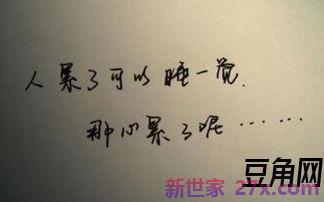 人累了可以睡一觉.
那心累了呢……
豆角网
新世家 27x.com